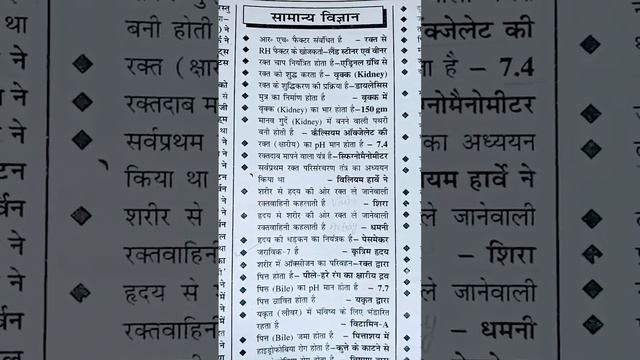 सामान्य विज्ञान
आर॰ एच॰ फैक्टर संबंधित है - रक्त से
RH फैक्टर के खोजकर्ता-लैंड स्टीनर एवं वीनर
रक्त चाप नियंत्रित होता है-एड्रिनल ग्रंथि से
रक्त को शुद्ध करता है- वृक्क (Kidney)
रक्त के शुद्धिकरण की प्रक्रिया है-डायलेसिस
मूत्र का निर्माण होता है - वृक्क में
वृक्क (Kidney) का भार होता है-150 gm
मानव गुर्दे (Kidney) में बनने वाली पथरी
बनी होती है - कैल्सियम ऑक्जेलेट की
रक्त (क्षारीय) का pH मान होता है - 7.4
रक्तदाब मापने वाला यंत्र है-स्फिग्नोमैनोमीटर
सर्वप्रथम रक्त परिसंचरण तंत्र का अध्ययन
किया था - विलियम हार्वे ने
शरीर से हृदय की ओर रक्त ले जानेवाली
रक्तवाहिनी कहलाती है - शिरा
हृदय से शरीर की ओर रक्त ले जानेवाली
रक्तवाहिनी कहलाती है - धमनी
हृदय की धड़कन का नियंत्रक है- पेसमेकर
जराविक-7 है - कृत्रिम हृदय
शरीर में ऑक्सीजन का परिवहन-रक्त द्वारा
पित्त होता है- पीले-हरे रंग का क्षारीय द्रव
पित्त (Bile) का pH मान होता है - 7.7
पित्त स्रावित होता है - यकृत द्वारा
यकृत (लीवर) में भविष्य के लिए भंडारित
रहता है - विटामिन-A
पित्त (Bile) जमा होता है - पित्ताशय में
हाइड्रोफोबिया रोग होता है-कुत्ते के काटने से